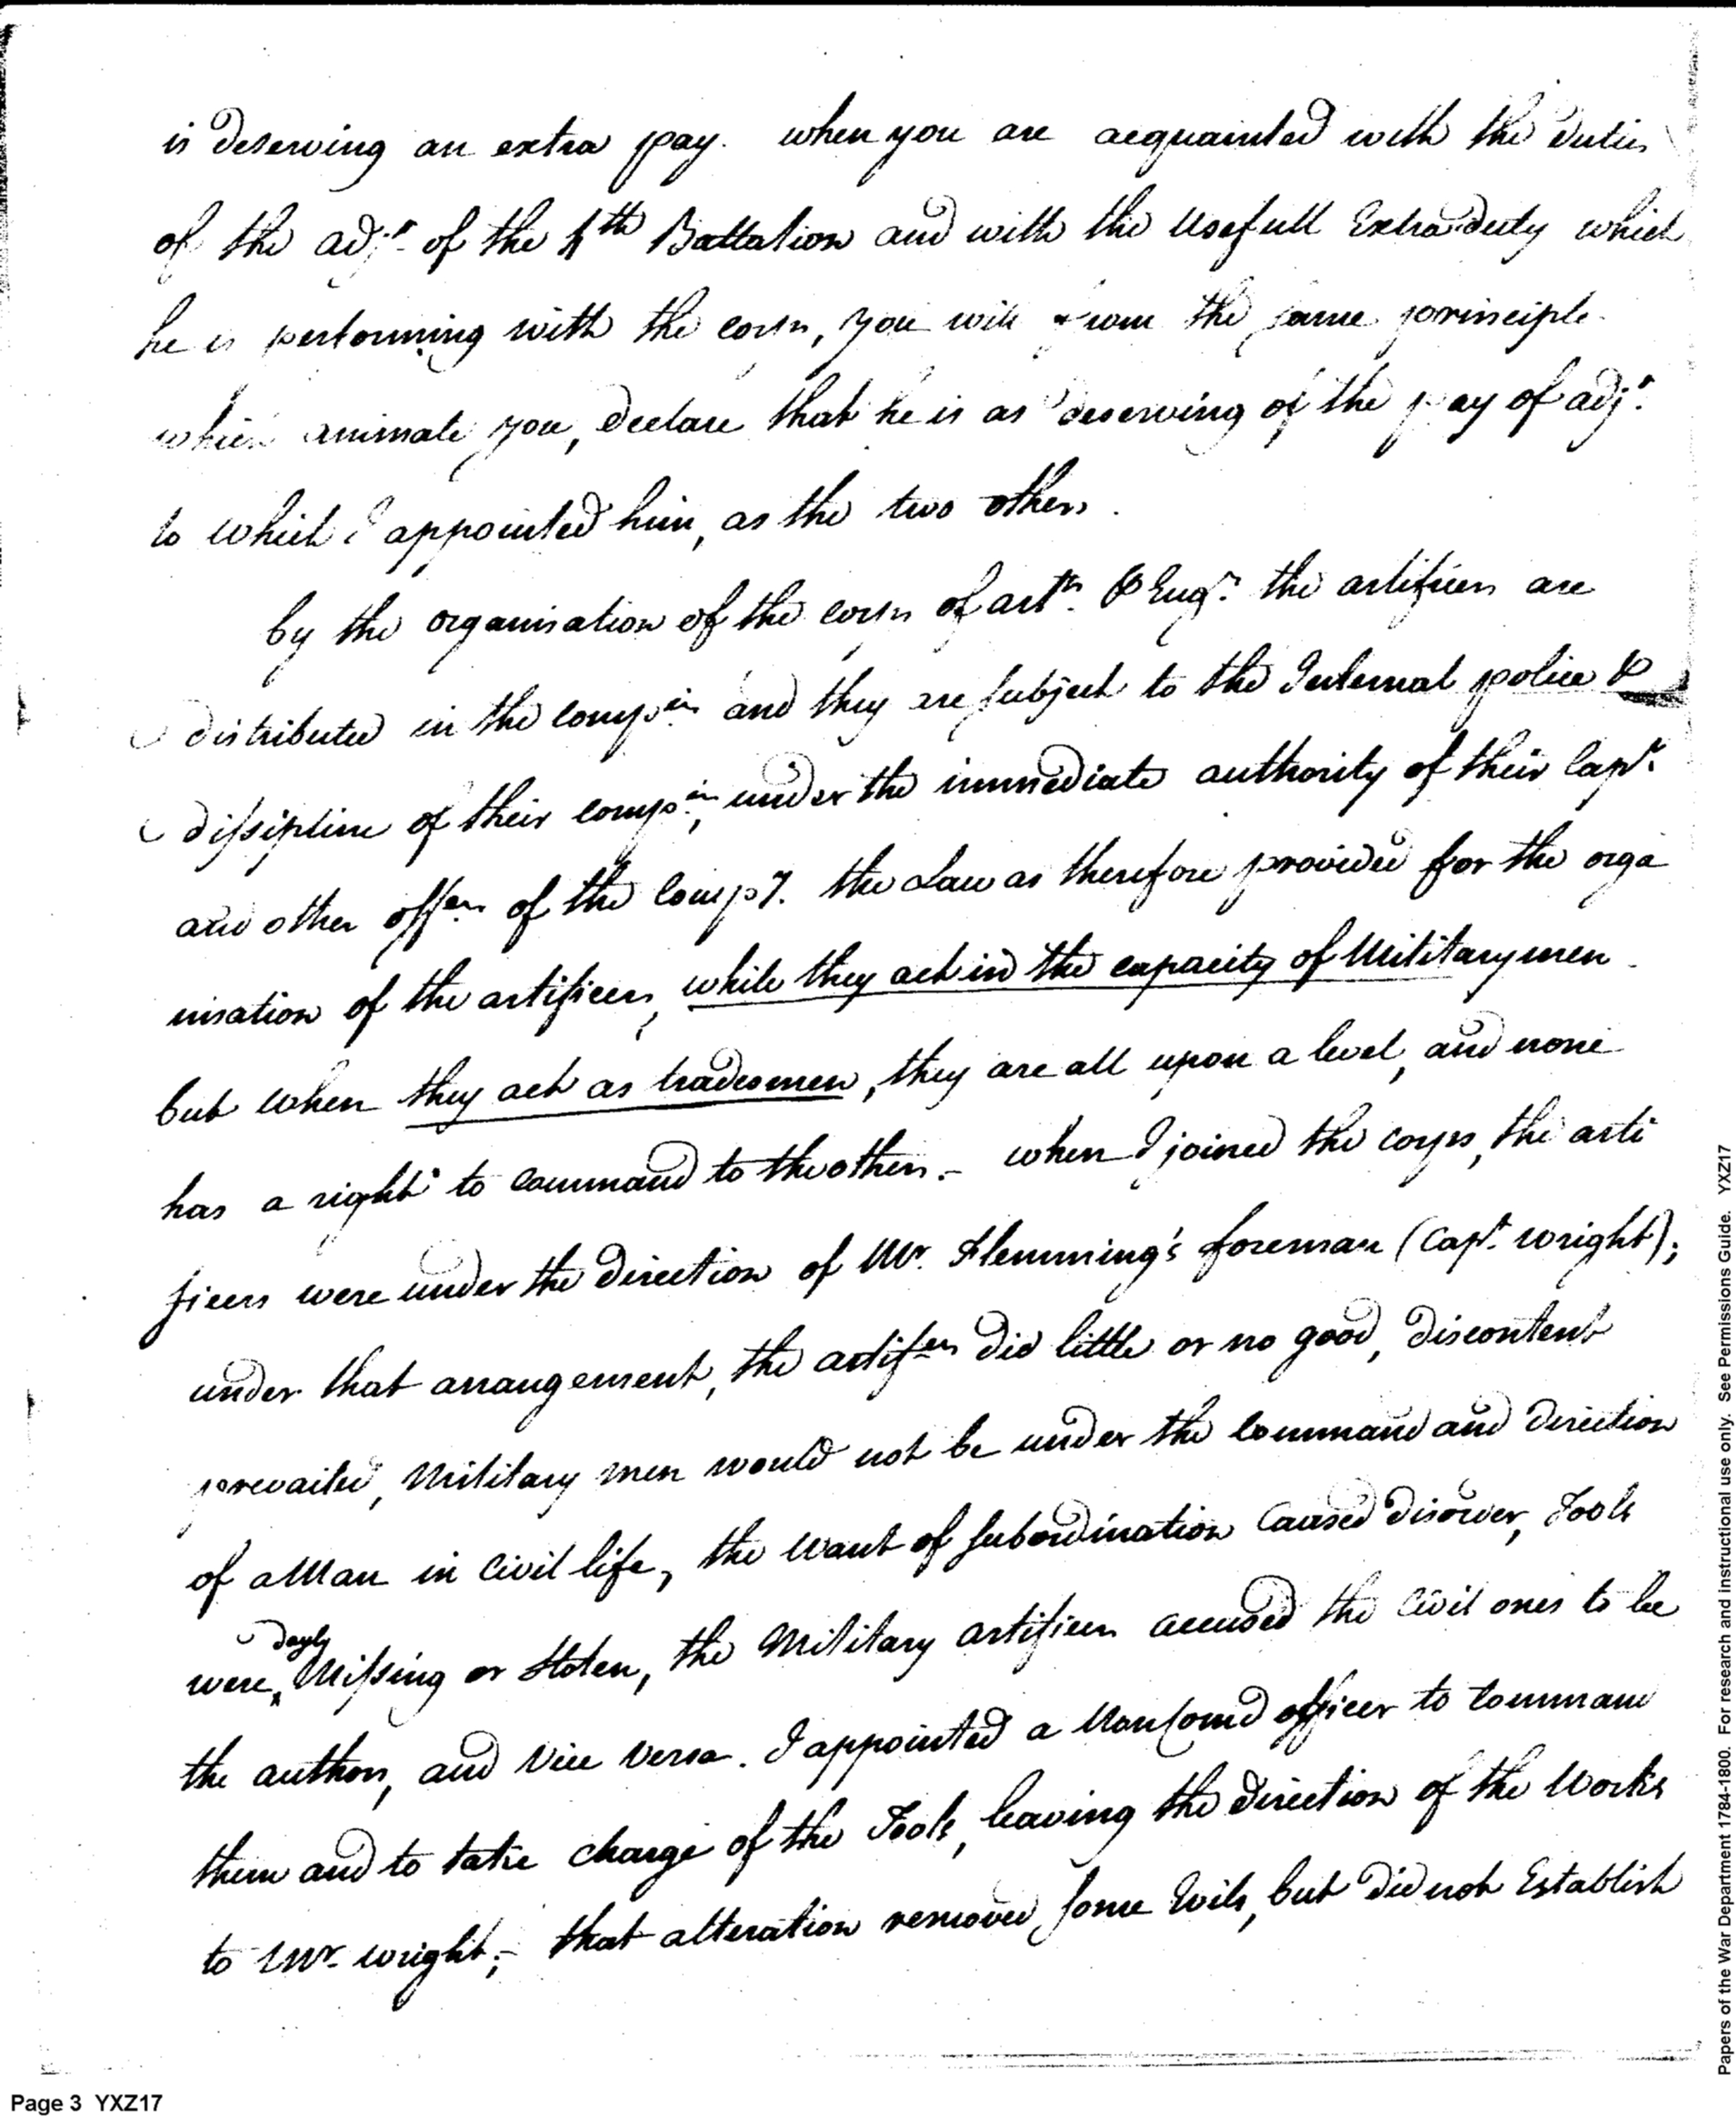 is deserving an extra pay. when you are acquainted with the duties
of the adj.t of the 4th Battalion and with the Usefull Extra duty which
he is performing with the corps, you will from the same principle
which animate you, declare that he is as deserving of the pay of adj.t
to which I appointed him, as the two others.
by the organisation of the corps of art.rs & Eng.rs the artificers are
distributed in the comp.ies and they are subject to the Internal police &
dissipline of their comp.ies, under the immediate authority of their Cap.t
and other off.ers of the Comp.y. the Law as therefore provided for the orga
nisation of the artificers, while they act in the capacity of Military men
but when they act as tradesmen, they are all upon a level, and none
has a right to command to the others. – when I joined the corps, the arti
ficers were under the direction of Mr. Flemming's foreman (Capt. Wright);
under that arrangement, the artif.ers did little or no good, discontent
prevailed, Military men would not be under the Command and direction
of a Man in Civil life, the want of subordination Caused disorder, Tools
dayly
were Missing or Stolen, the Military artificers accused the Civil ones to be
the authors, and vice versa. I appointed a Non Comd officer to Command
them and to take charge of the Tools, leaving the direction of the Works
to Mr. Wright; – that alteration removed some Evils, but did not Establish
Page 3 YXZ17
Papers of the War Department 1784-1800. For research and instructional use only. See Permissions Guide. YXZ17